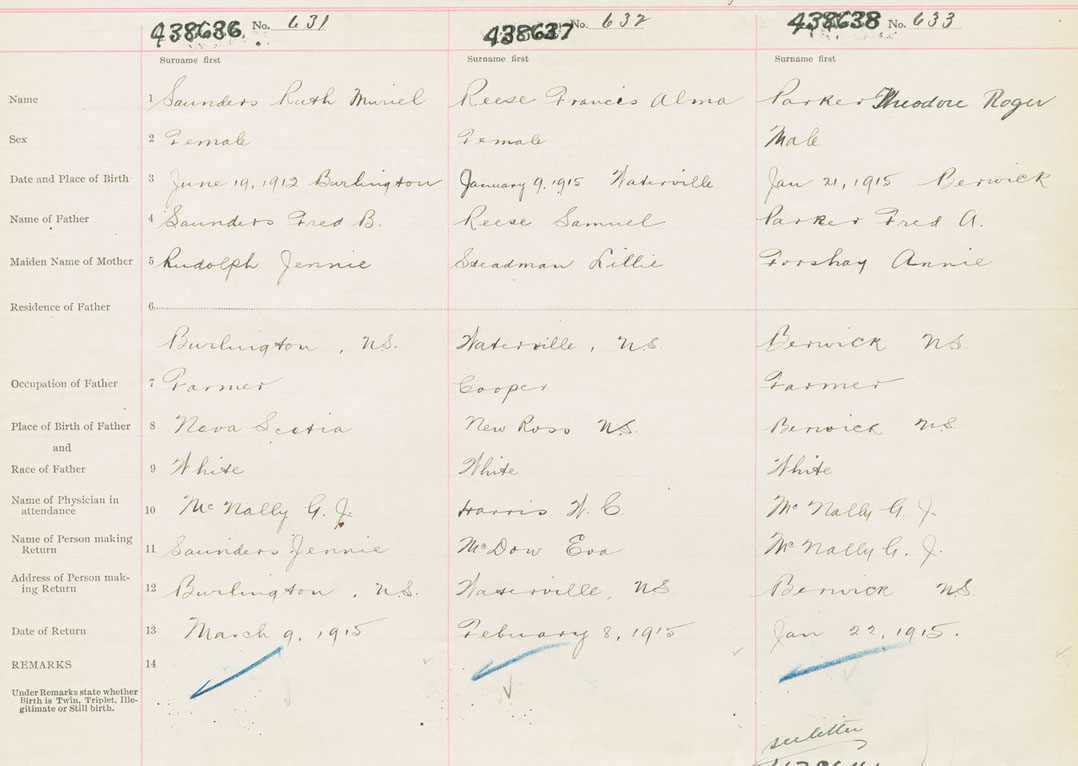 438636 No. 631 438637 No. 632 438638 No. 633
Surname first Surname first Surname first
Name 1 Saunders Ruth Muriel Reese Francis Alma Parker Theodore Roger
Sex 2 Female Female Male
Date and Place of Birth 3 June 19, 1912 Burlington January 9, 1915 Waterville Jan 21, 1915 Berwick
Name of Father 4 Saunders Fred B. Reese Samuel Parker Fred A.
Maiden Name of Mother 5 Rudolph Jennie Steadman Lillie Forshay Annie
Residence of Father 6
Burlington, N.S. Waterville, NS Berwick NS
Occupation of Father 7 Farmer Cooper Farmer
Place of Birth of Father 8 Nova Scotia New Ross N.S. Berwick NS
and
Race of Father 9 White White White
Name of Physician in
attendance 10 McNally G. J. Harris W. C. McNally G. J.
Name of Person making
Return 11 Saunders Jennie McDow Eva McNally G. J.
Address of Person mak-
ing Return 12 Burlington, N.S. Waterville, NS Berwick NS
Date of Return 13 March 9, 1915 February 8, 1915 Jan 22, 1915.
REMARKS 14
Under Remarks state whether
Birth is Twin, Triplet, Ille-
gitimate or Still birth.
see letter